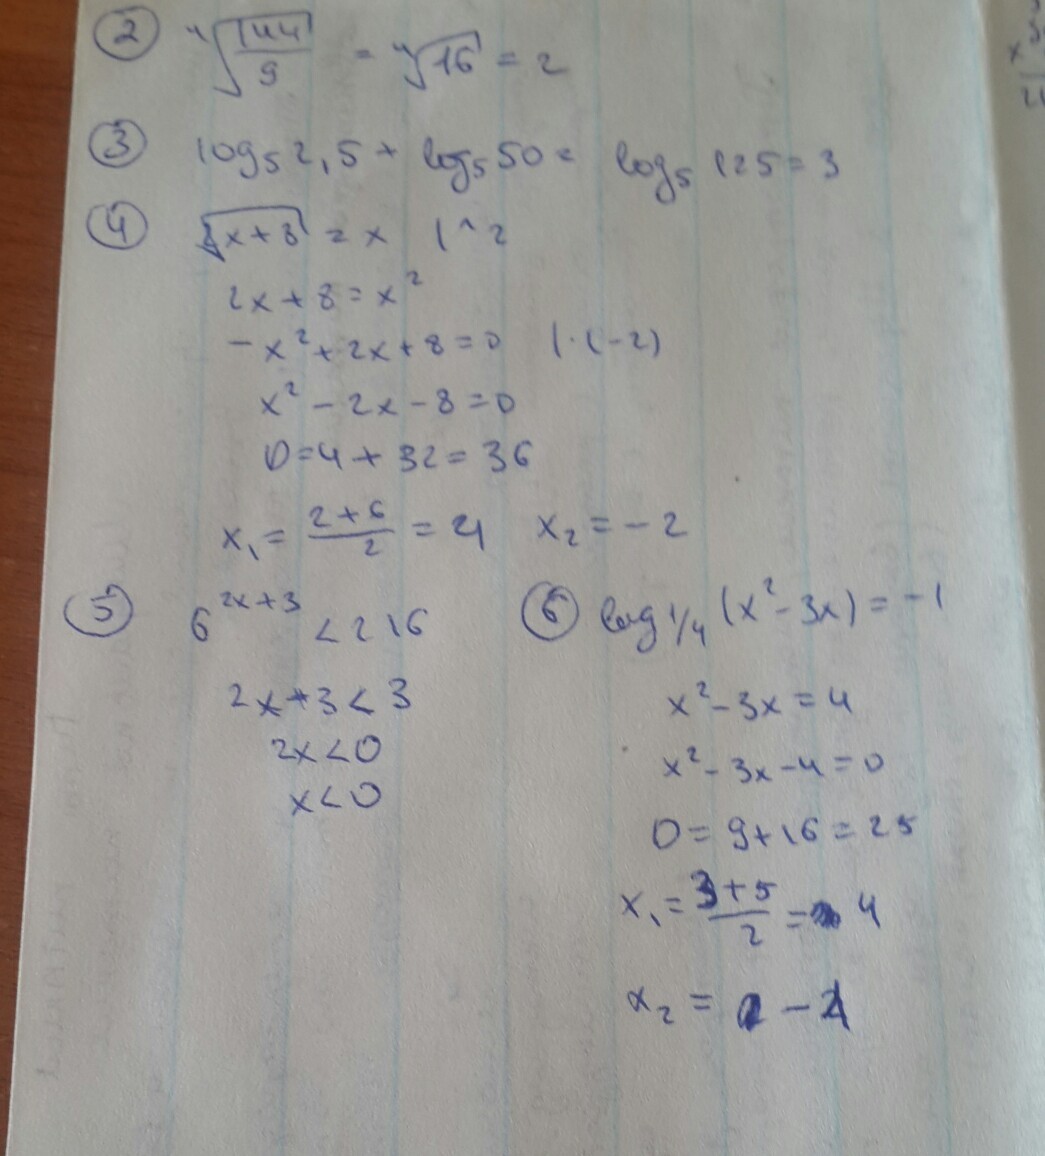 ② ⁴√(144/9) = ⁴√16 = 2
③ log₅ 2,5 + log₅ 50 = log₅ 125 = 3
④ √(2x+8) = x | ^ 2
2x + 8 = x²
-x² + 2x + 8 = 0 | · (-2)
x² - 2x - 8 = 0
D = 4 + 32 = 36
x₁ = (2+6)/2 = 4 x₂ = -2
⑤ 6^(2x+3) < 216
2x+3 < 3
2x < 0
x < 0
⑥ log 1/4 (x² - 3x) = -1
x² - 3x = 4
x² - 3x - 4 = 0
D = 9 + 16 = 25
x₁ = (3+5)/2 = 4
x₂ = -1